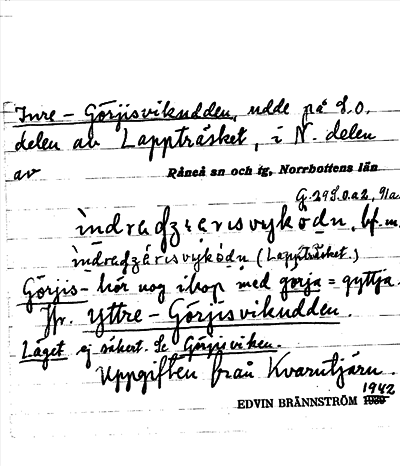 Inre - Görjisvikudden, udde på S.O.
delen av Lappträsket, i N. delen
av Råneå sn och tg, Norrbottens län
G. 29 S.O. a 2, 9/a.
bf. m.
(Lappträsket.)
Görjis- hör nog ihop med gorja = gyttja.
Jfr. yttre - Görjisvikudden.
Läget ej säkert. Se Görjisviken.
Uppgiften från Kvarntjärn.
1942
EDVIN BRÄNNSTRÖM 1939